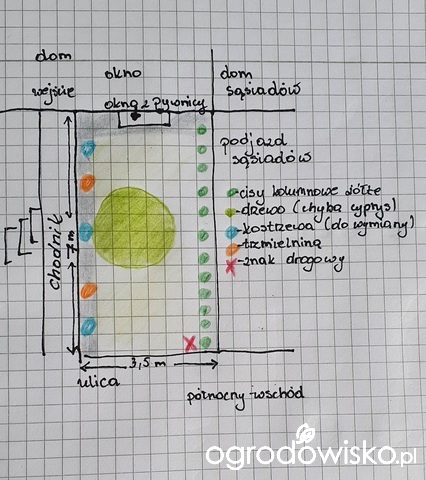 dom
okno
dom
wejście
sąsiadów
okno z piwnicy
podjazd
sąsiadów
-cisy kolumnowe żółte
-drzewo (chyba cyprys)
-kostrzewa (do wymiany)
-trzmielina
-znak drogowy
chodnik
7m
3,5 m
ulica
północny-wschód
ogrodowisko.pl